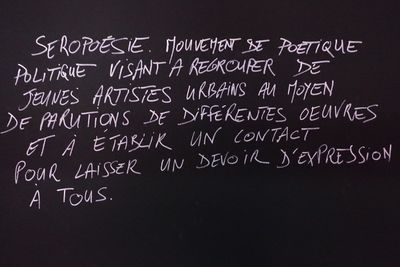 SEROPOÉSIE. MOUVEMENT DE POÉTIQUE
POLITIQUE VISANT A REGROUPER DE
JEUNES ARTISTES URBAINS AU MOYEN
DE PARUTIONS DE DIFFÉRENTES OEUVRES
ET A ÉTABLIR UN CONTACT
POUR LAISSER UN DEVOIR D'EXPRESSION
À TOUS.